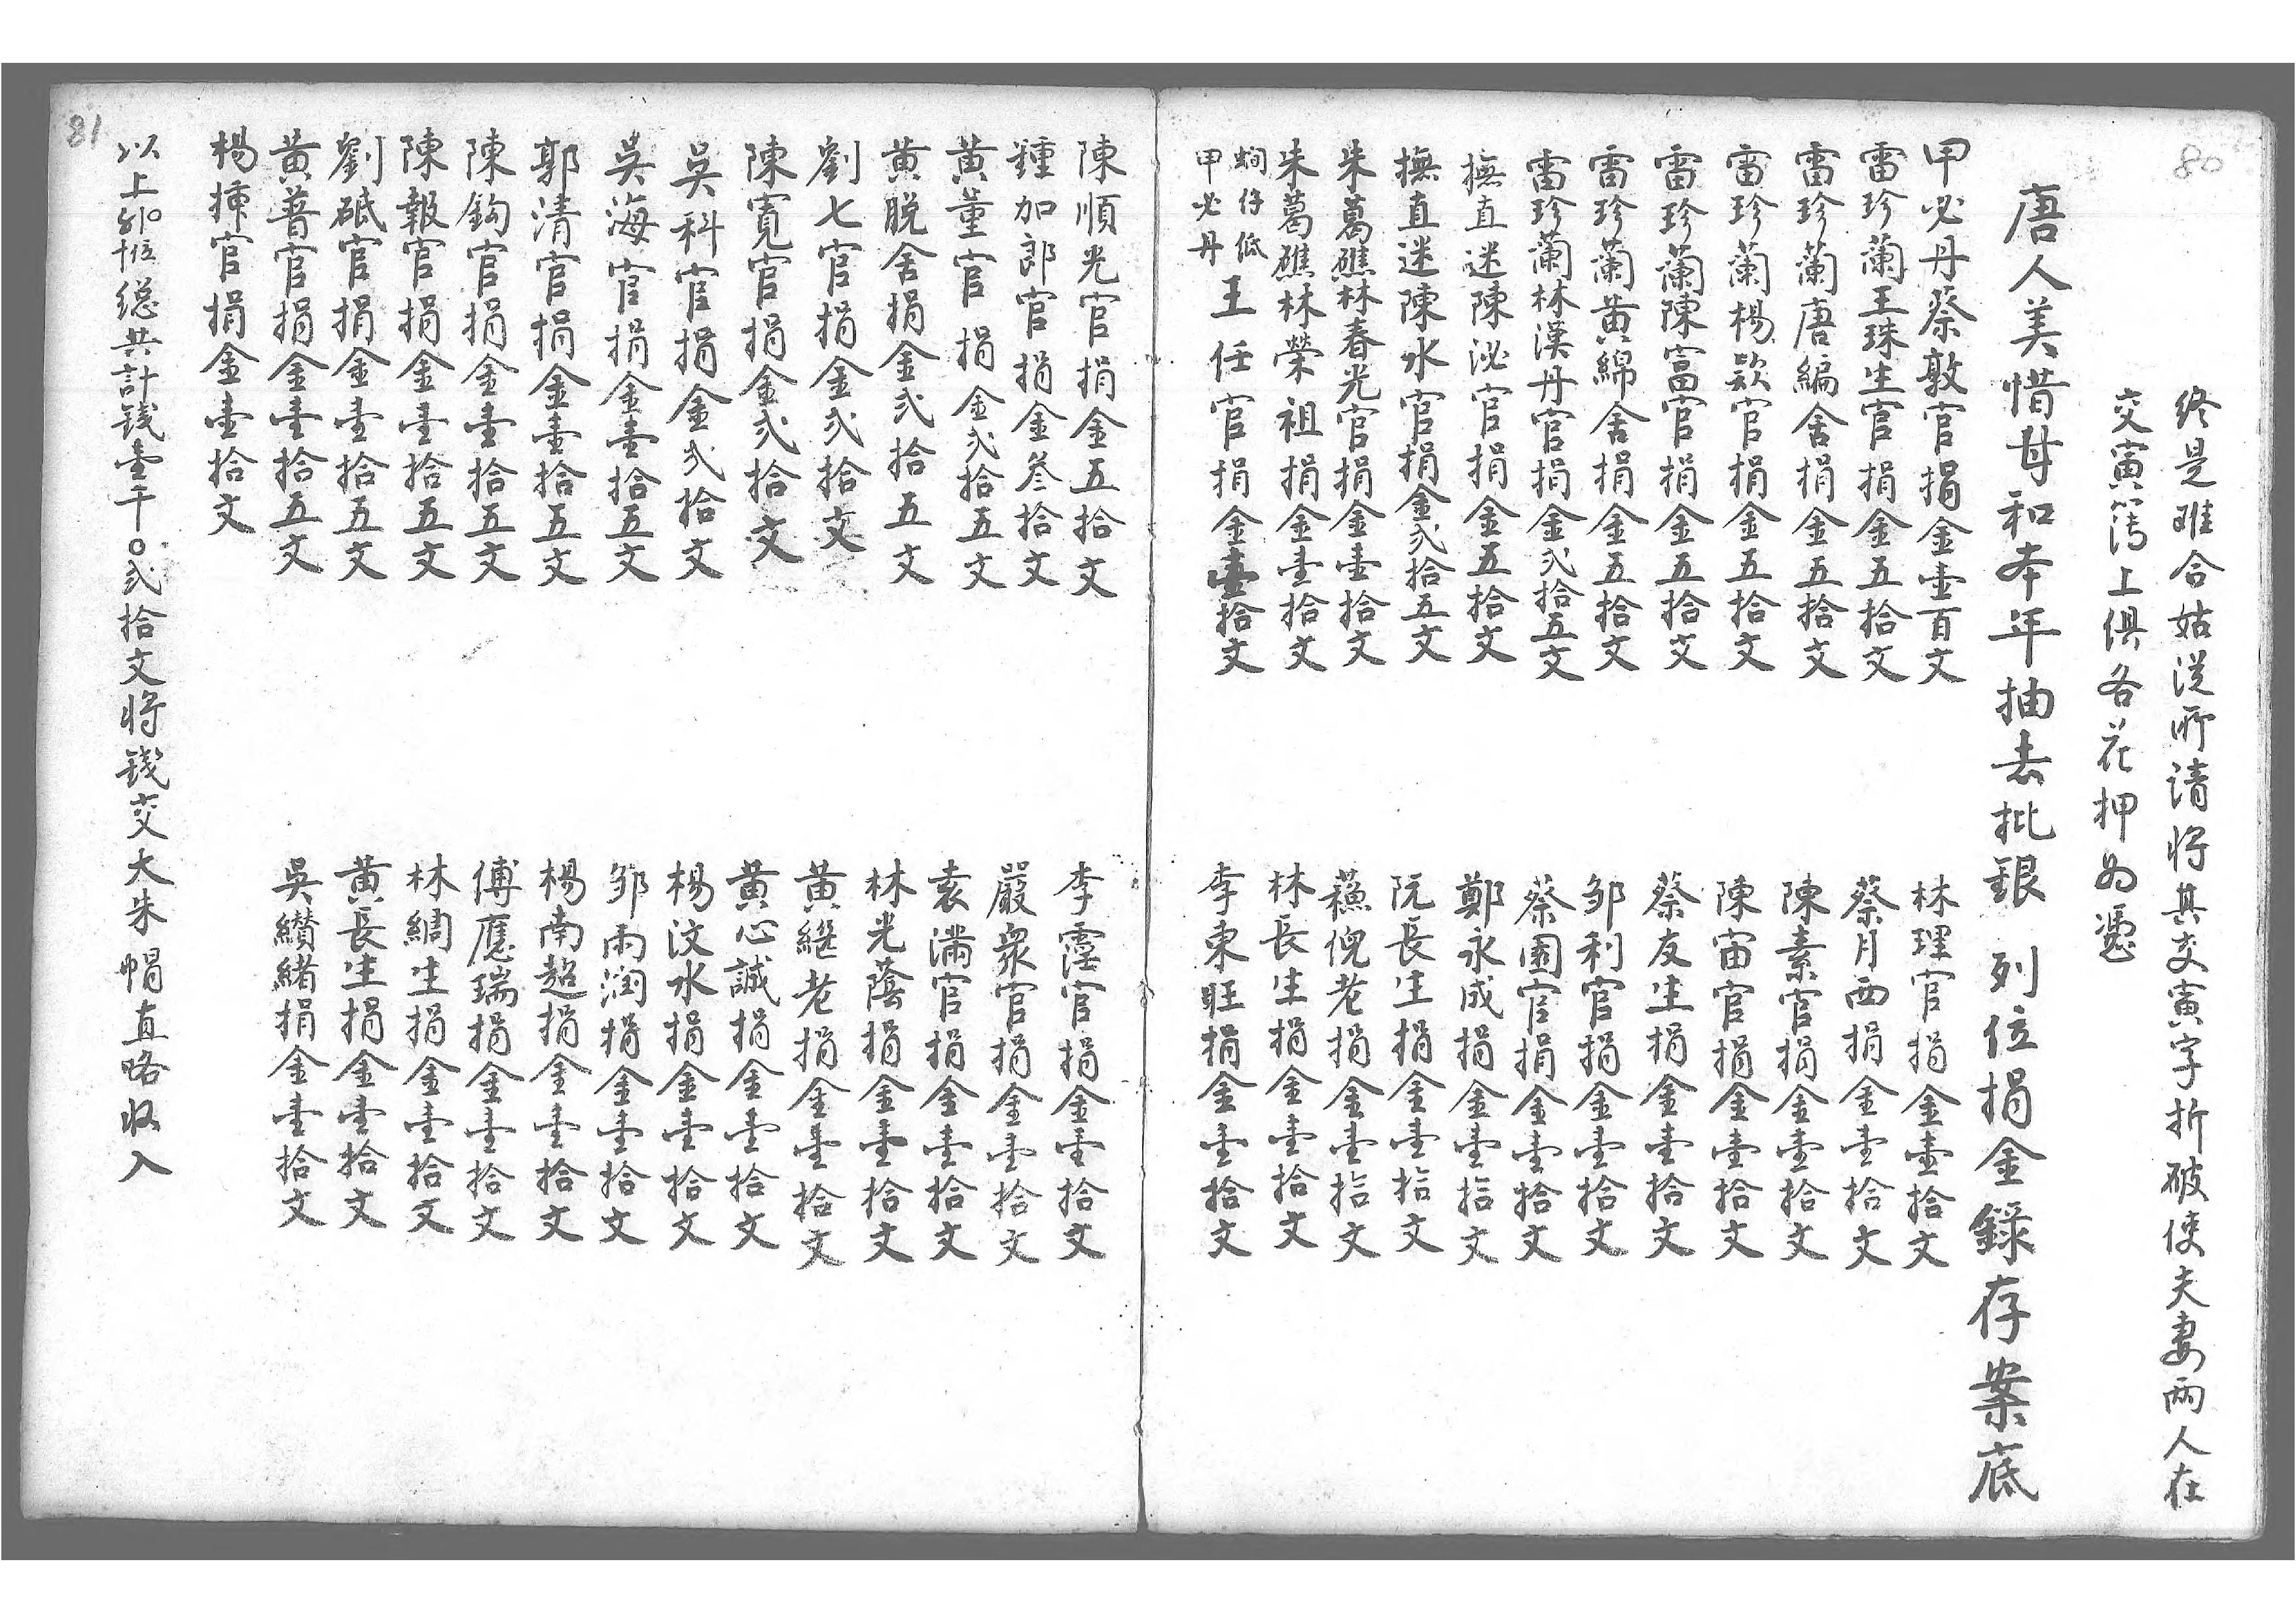 80
終是难合姑從所請將其交寅字折破使夫妻兩人在
交寅簿上俱各花押為憑
唐人美惜厝和本年抽去批銀 列位捐金錄存案底
甲必丹蔡敦官捐金壹百文
雷珍蘭王珠生官捐金五拾文
雷珍蘭唐編舍捐金五拾文
雷珍蘭楊款官捐金五拾文
雷珍蘭陳富官捐金五拾文
雷珍蘭黄綿舍捐金五拾文
雷珍蘭林漢丹官捐金弍拾五文
撫直迷陳泌官捐金五拾文
撫直迷陳水官捐金弍拾五文
朱葛礁林春光官捐金壹拾文
朱葛礁林榮祖捐金壹拾文
蚋仔低
甲必丹
王任官捐金壹拾文
林理官捐金壹拾文
蔡月西捐金壹拾文
陳素官捐金壹拾文
陳宙官捐金壹拾文
蔡友生捐金壹拾文
邹利官捐金壹拾文
蔡園官捐金壹拾文
鄭永成捐金壹拾文
阮長生捐金壹拾文
蘓倪老捐金壹拾文
林長生捐金壹拾文
李東旺捐金壹拾文
陳順光官捐金五拾文
鍾加郎官捐金叁拾文
黄董官捐金弍拾五文
黄脱舍捐金弍拾五文
劉七官捐金弍拾文
陳寬官捐金弍拾文
吳科官捐金弍拾文
吳海官捐金壹拾五文
郭清官捐金壹拾五文
陳鈎官捐金壹拾五文
陳報官捐金壹拾五文
劉砥官捐金壹拾五文
黄普官捐金壹拾五文
楊揀官捐金壹拾文
李霪官捐金壹拾文
嚴眾官捐金壹拾文
袁滿官捐金壹拾文
林光蔭捐金壹拾文
黄繼老捐金壹拾文
黄心誠捐金壹拾文
楊汶水捐金壹拾文
邹雨润捐金壹拾文
楊南超捐金壹拾文
傅應瑞捐金壹拾文
林綢生捐金壹拾文
黄長生捐金壹拾文
吳纘緒捐金壹拾文
以上 総共計錢壹千〇弍拾文将錢交大朱帽直略收入
81